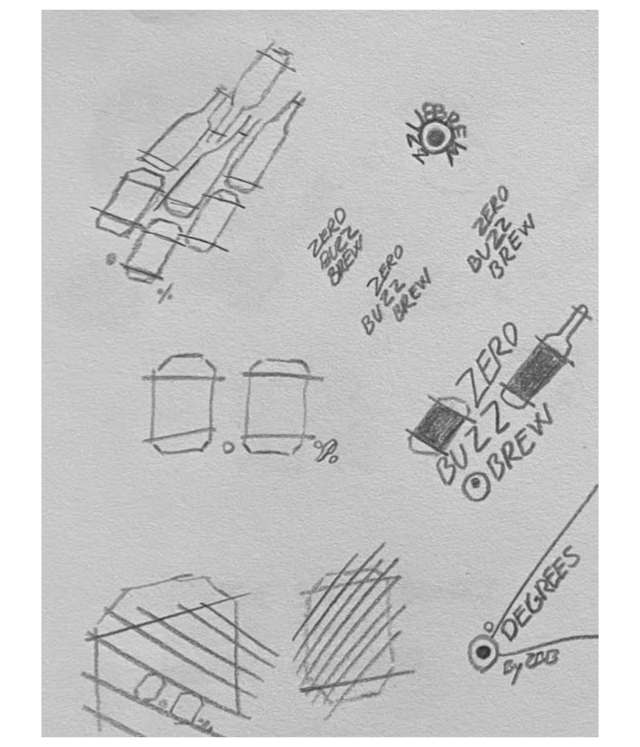 ZUBREW
ZERO
BUZZ
BREW
ZERO
BUZZ
BREW
ZERO
BUZZ
BREW
ZERO
BUZZ
BREW
%
DEGREES
By ZBB